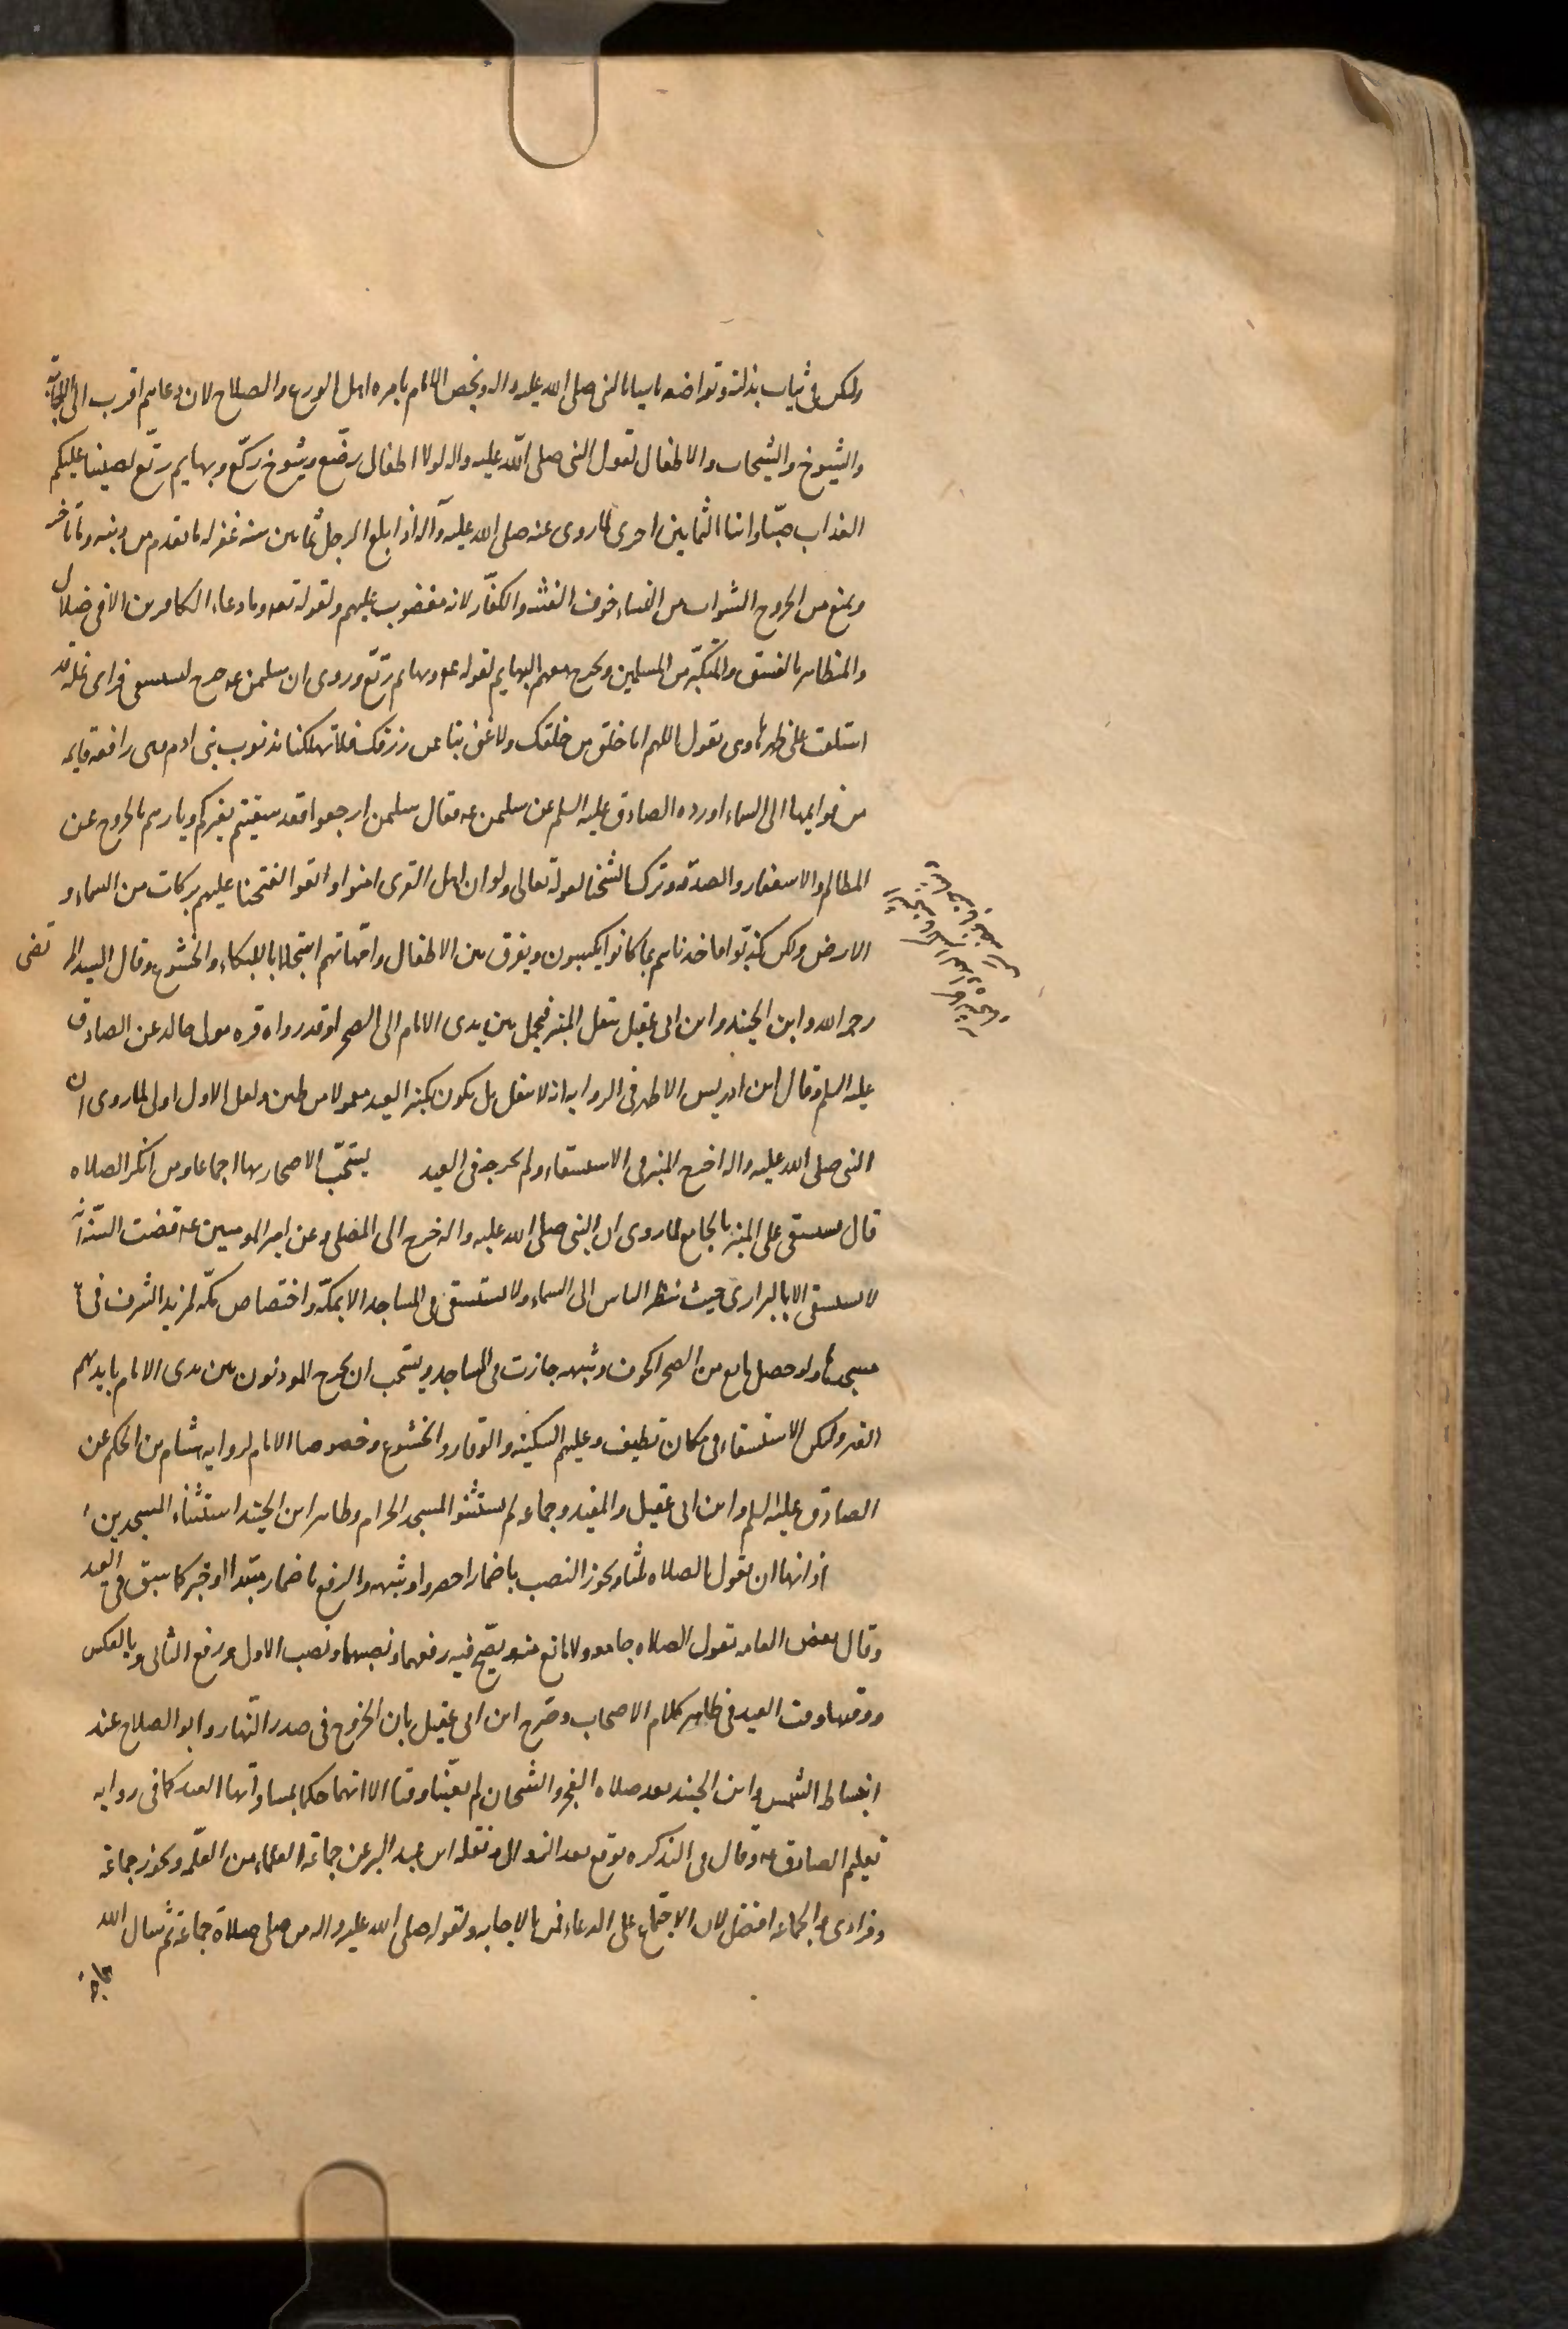 وليكن في ثياب بذلة وتواضعه تاسيا بالنبي صلى الله عليه واله ويخص الامام بامره اهل الورع والصلاح لان دعاهم اقرب الى الاجابة
والشيوخ والشيخات والاطفال لقول النبي صلى الله عليه واله لولا اطفال رضّع وشيوخ ركّع وبهايم رتّع لصببنا عليكم
العذاب صبّا وابنا الثمانين احرى لما روى عنه صلى الله عليه وآله اذا بلغ الرجل ثمانين سنه غفر له ما تقدم من ذنبه وما تاخر
ويمنع من الخروج الشواب من النساء خوف الفتنه والكفّار لانه مغضوب عليهم ولقوله تعه وما دعاء الكافرين الا في ضلال
والمتظاهر بالفسق والمتكبّر من المسلمين ويخرج معهم البهايم لقوله عه وبهايم رتّع وروى ان سليمن عه خرج ليستسقي فراى نملة قد
استلقت على ظهرها وهى تقول اللهم انا خلق من خلقك ولا غنى بنا عن رزقك فلا تهلكنا بذنوب بنى ادم وهى رافعه قايمه
من قوايمها الى السماء اورده الصادق عليه السلم عن سليمن عه فقال سليمن ارجعوا فقد سقيتم بغيركم ويامرهم بالخروج عن
المظالم والاستغفار والصدقه وترك الشحنا لقوله تعالى ولو ان اهل القرى امنوا واتقوا لفتحنا عليهم بركات من السماء و
الارض ولكن كذبوا فاخذناهم بما كانوا يكسبون ويفرق بين الاطفال وامّهاتهم استجلابا للبكاء والخشوع وقال السيد المرتضى
رحمه الله وابن الجنيد وابن ابى عقيل ينقل المنبر فيحمل بين يدى الامام الى الصحرا وقد رواه قره مولى خالد عن الصادق
عليه السلم وقال ابن ادريس الاظهر في الروايه انه لا ينقل بل يكون كمنبر العيد معمولا من طين ولعل الاول اولى لما روى ان
النبى صلى الله عليه واله اخرج المنبر في الاستسقاء ولم يخرجه في العيد يستحبّ الاصحار بها اجماعا ومن انكر الصلاه
قال يستسقى على المنبر بالجامع لما روى ان النبى صلى الله عليه واله خرج الى المصلى وعن امير المومنين عه قضت السنّه انه
لا يستسقى الا بالبرارى حيث ينظر الناس الى السماء ولا يستسقى في المساجد الا بمكّه واختصاص مكّه لمزيد الشرف في
مسجدها ولو حصل مانع من الصحرا كخوف وشبهه جازت في المساجد ويستحب ان يخرج الموذنون بين يدى الامام بايديهم
العنز وليكن الاستسقاء في مكان نظيف وعليهم السكينه والوقار والخشوع وخصوصا الامام لروايه هشام بن الحكم عن
الصادق عليه السلم وابن ابى عقيل والمفيد وجماعه لم يستثنوا المسجد الحرام وظاهر ابن الجنيد استثناء المسجدين
اذانها ان يقول الصلاه ثلثا ويجوز النصب باضمار احضروا وشبهه والرفع باضمار مبتدا او خبر كما سبق في العيد
وقال بعض العامه تقول الصلاه جامعه ولا مانع منه ويصّح فيه رفعهما ونصبهما ونصب الاول ورفع الثانى وبالعكس
ووقتها وقت العيد في ظاهر كلام الاصحاب وصّرح ابن ابى عقيل بان الخروج في صدر النهار وابو الصلاح عند
انبساط الشمس وابن الجنيد بعد صلاه الفجر والشيخان لم يعيّنا وقتا الا انهما حكما بمساواتها العيد كما في روايه
تعليم الصادق عه وقال في التذكره يوقع بعد الزوال ونقله ابن عبد البر عن جماعة العلماء من العامّه ويجوز جماعة
وفرادى والجماعه افضل لان الاجتماع على الدعاء قمن بالاجابه ولقوله صلى الله عليه واله من صلى صلاة جماعة ثم سال الله
حاجة